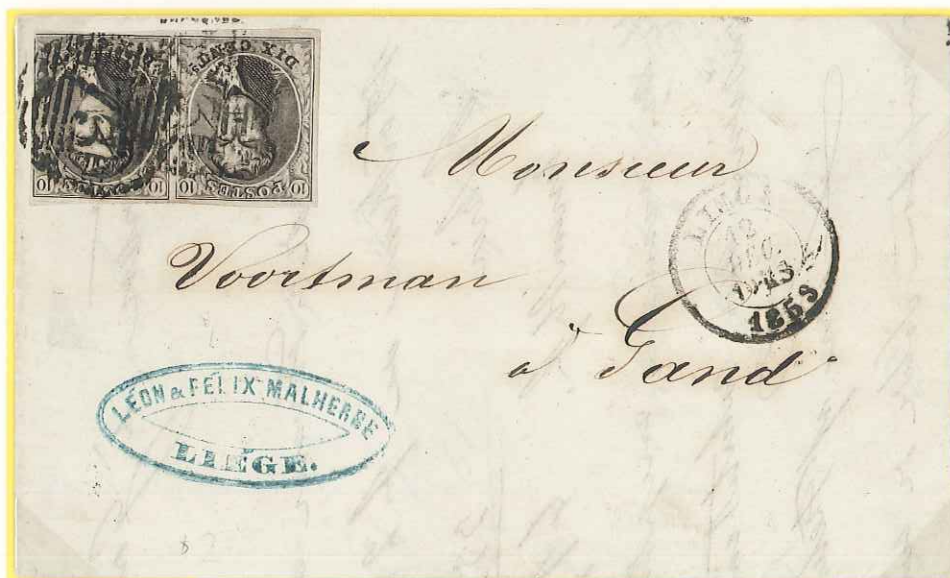 DIX CENTS
10 POSTES 10
10 10
Monsieur
Voortman
à Gand
12
DEC.
1853
LEON & FELIX MALHERBE
LIEGE.